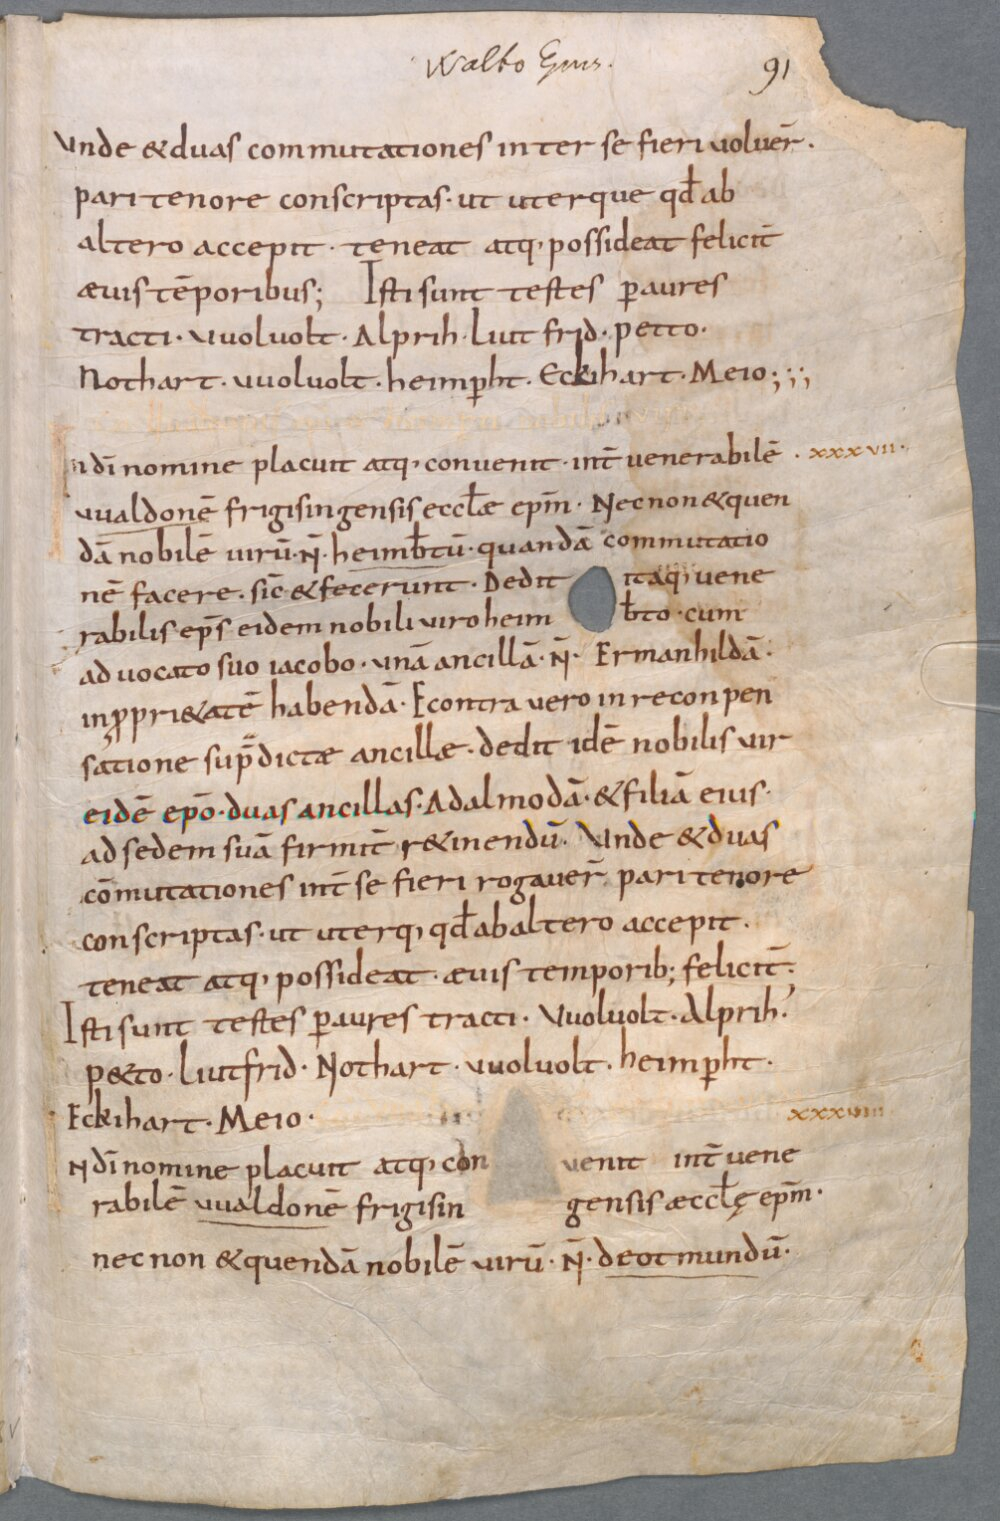 Walto Epus.
91
Vnde &duas commutationes inter se fieri voluer̄.
pari tenore conscriptas· ut uterque qđ ab
altero accepit · teneat atq· possideat feliciт̄
ævis tēporibus; Isti sunt testes ꝑ aures
tracti· vvoluolt· Alprih· liutfrid· petto·
Nothart· vvoluolt· heimp̄ht· Eckihart· Meio;;;
In dī nomine placuit atq· convenit · int̄ venerabilē · xxxvii·
vvaldonē frigisingensis eccłæ ep̄m· Nec non &quen
dā nobilē virū· N̄· heimb̄tū· quandā commutatio
nē facere· sic̄ & fecerunt· Dedit itaq· vene
rabilis ep̄s eidem nobili viro heim b̄to· cum
advocato suo iacobo· unā ancillā· N̄· Ermanhildā·
in ꝓpri&atē habendā· Econtra vero in reconpen
satione sup̄dictæ ancillæ· dedit idē nobilis vir
eidē ep̄o· duas ancillas· Adalmodā· & filiā eius·
ad sedem suā firmit̄ r&inendū· Vnde & duas
cōmutationes int̄ se fieri rogaver̄ pari tenore
conscriptas· ut uterq· qđ ab altero accepit·
teneat atq· possideat· ævis temporib; feliciт̄·
Isti sunt testes ꝑ aures tracti· Vvoluolt· Alprih·
p&to· liutfrid· Nothart· vvoluolt· heimp̄ht·
Eckihart· Meio· xxxviii
N dī nomine placuit atq· con venit int̄ vene
rabilē vvaldonē frigisin gensis æccłę ep̄m·
nec non & quendā nobilē virū· N̄· deotmundū·